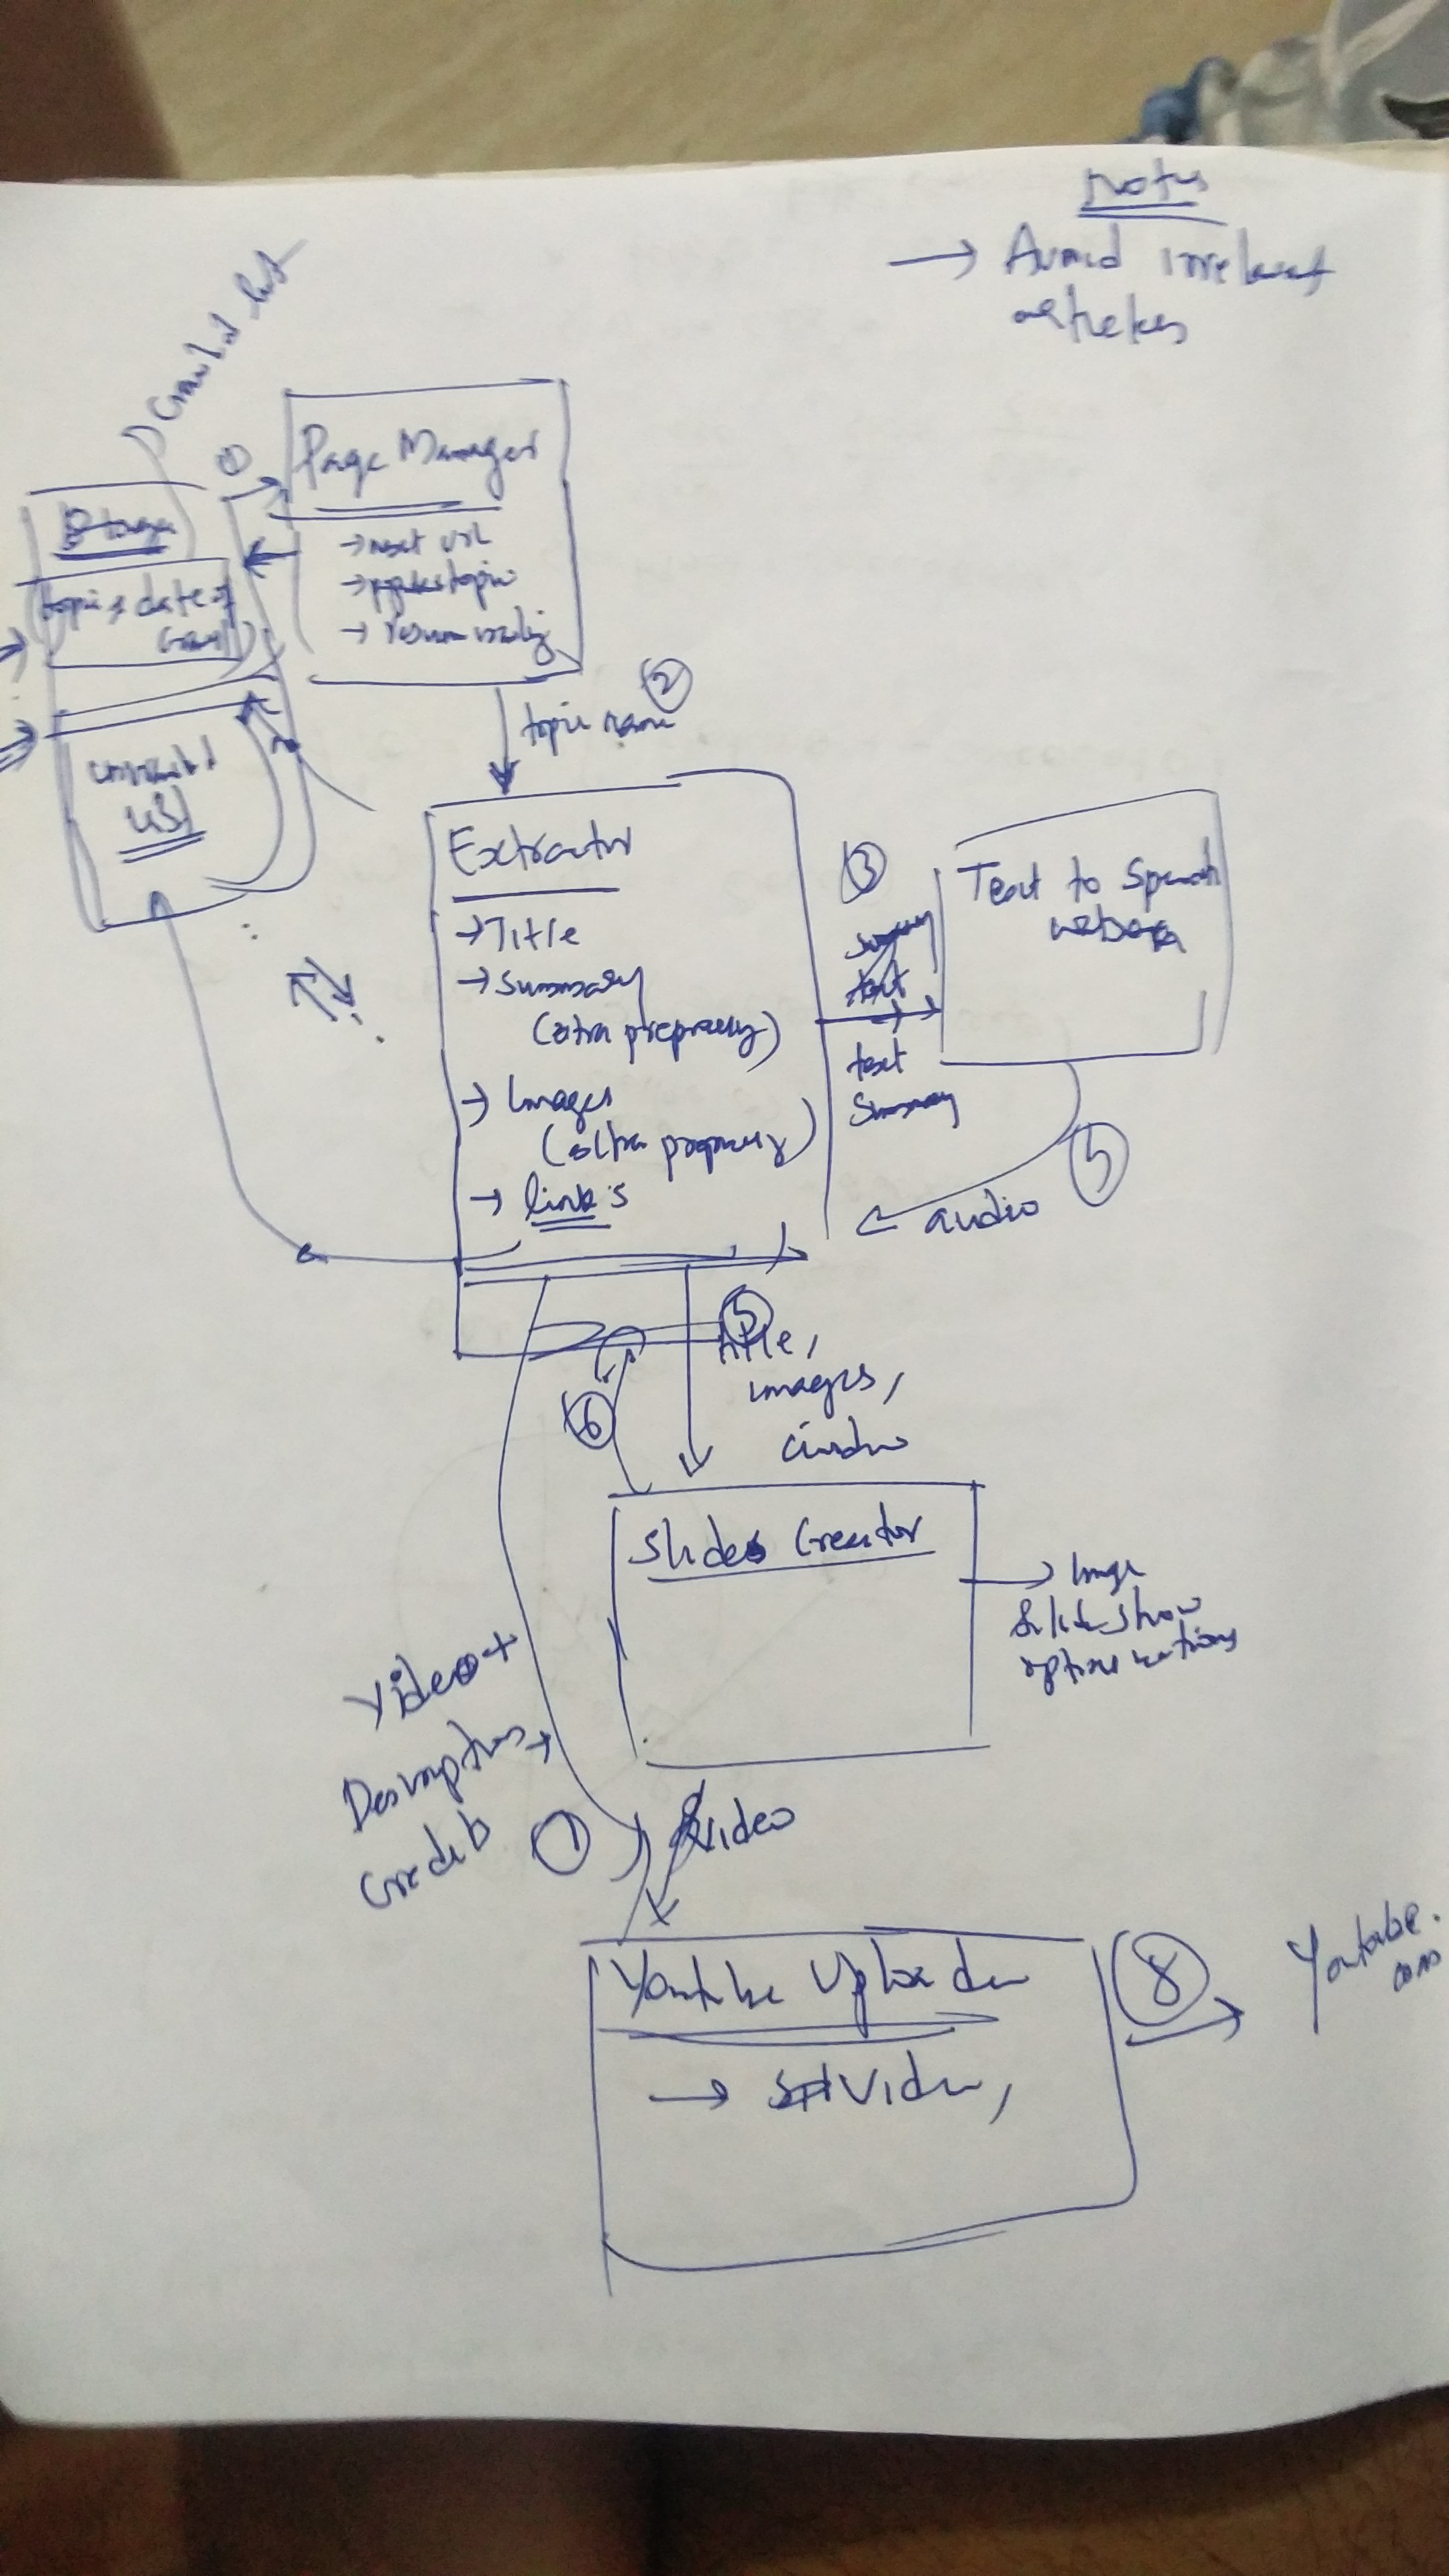 Notes
→ Avoid irrelevant
articles
Crawled list
①
Page Manager
→ next url
→ topic
→
Storage
topic & date of
crawl
list
topic name ②
Extractor
→ Title
→ Summary
(extra
→ Images
(extra
→ links
③
text
summary
Text to Speech
audio
5
5
title,
images,
6
Slides Creator
→ Image
Slide show
optimizations
Video +
Description
credits
7
video
Youtube Uploader
→ video,
8
Youtube.
com